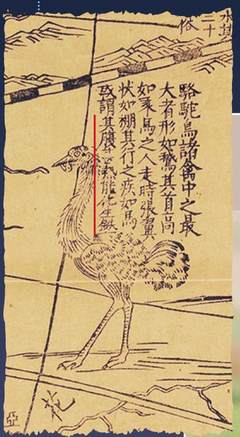 駱駝鳥諸禽中之最
大者形如鵞其首高
如乘馬之人走時張翼
狀如棚其行之疾如馬
或謂其腹甚熱能化生鐵